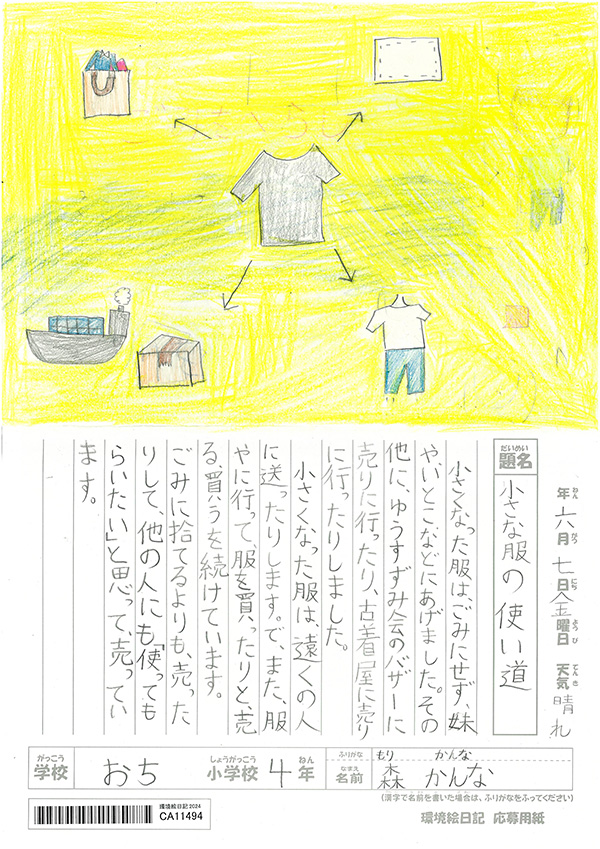 年 六月 七日 金曜日 天気 晴れ
がつ にち ようび てんき
だいめい
題名 小さな服の使い道
小さくなった服は、ごみにせず、妹
やいとこなどにあげました。その
他に、ゆうすずみ会のバザーに
売りに行ったり、古着屋に売り
に行ったりしました。
小さくなった服は、遠くの人
に送ったりします。で、また、服
やに行って、服を買ったりと、売
る、買うを続けています。
ごみに捨てるよりも、売った
りして、他の人にも「使っても
らいたい」と思って、売ってい
ます。
がっこう しょうがっこう ねん ふりがな もり かんな
学校 おち 小学校 4年 なまえ 名前 森 かんな
(漢字で名前を書いた場合は、ふりがなをふってください)
環境絵日記2024
CA11494
環境絵日記 応募用紙